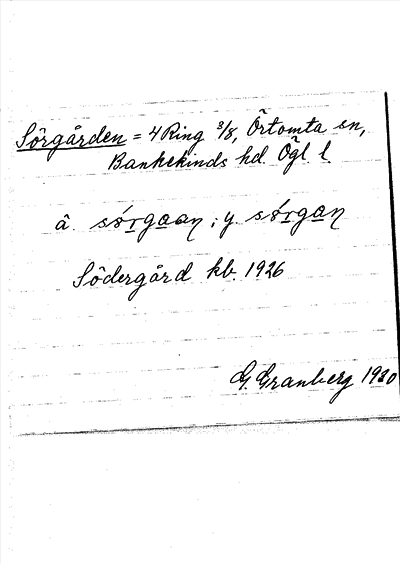 Sörgården = 4 Ring 3/8, Örtomta sn,
Bankekinds hd Ögl. l.
â. sörgaaŋ ; y. sörgaŋ
Södergård kb. 1926
G. Granberg 1930